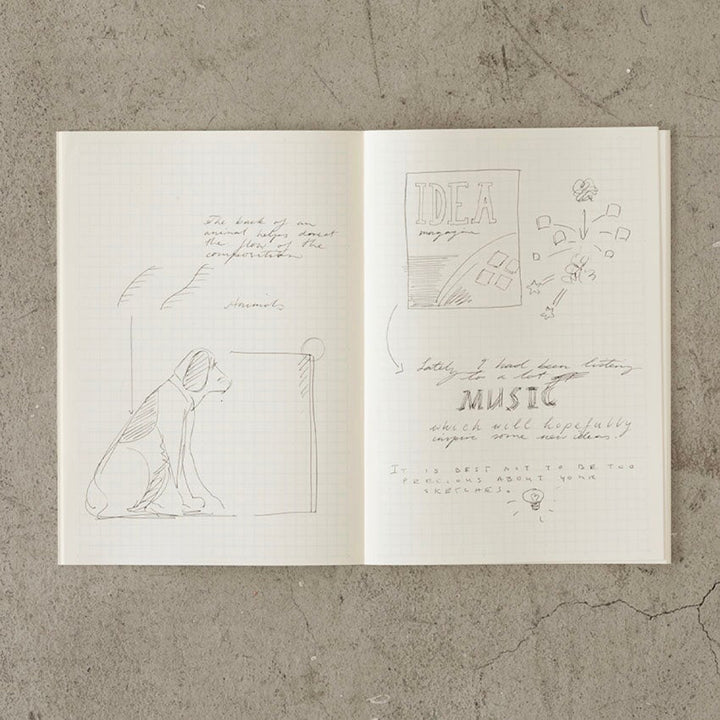 The back of an
animal helps dorect
the flow of the
composition
Animals
IDEA
magazine
Lately I had been listeny
to a lot of
MUSIC
which will hopefully
inspire some new ideas.
IT IS BEST NOT TO BE TOO
PRECIOUS ABOUT YOUR
SKETCHES.